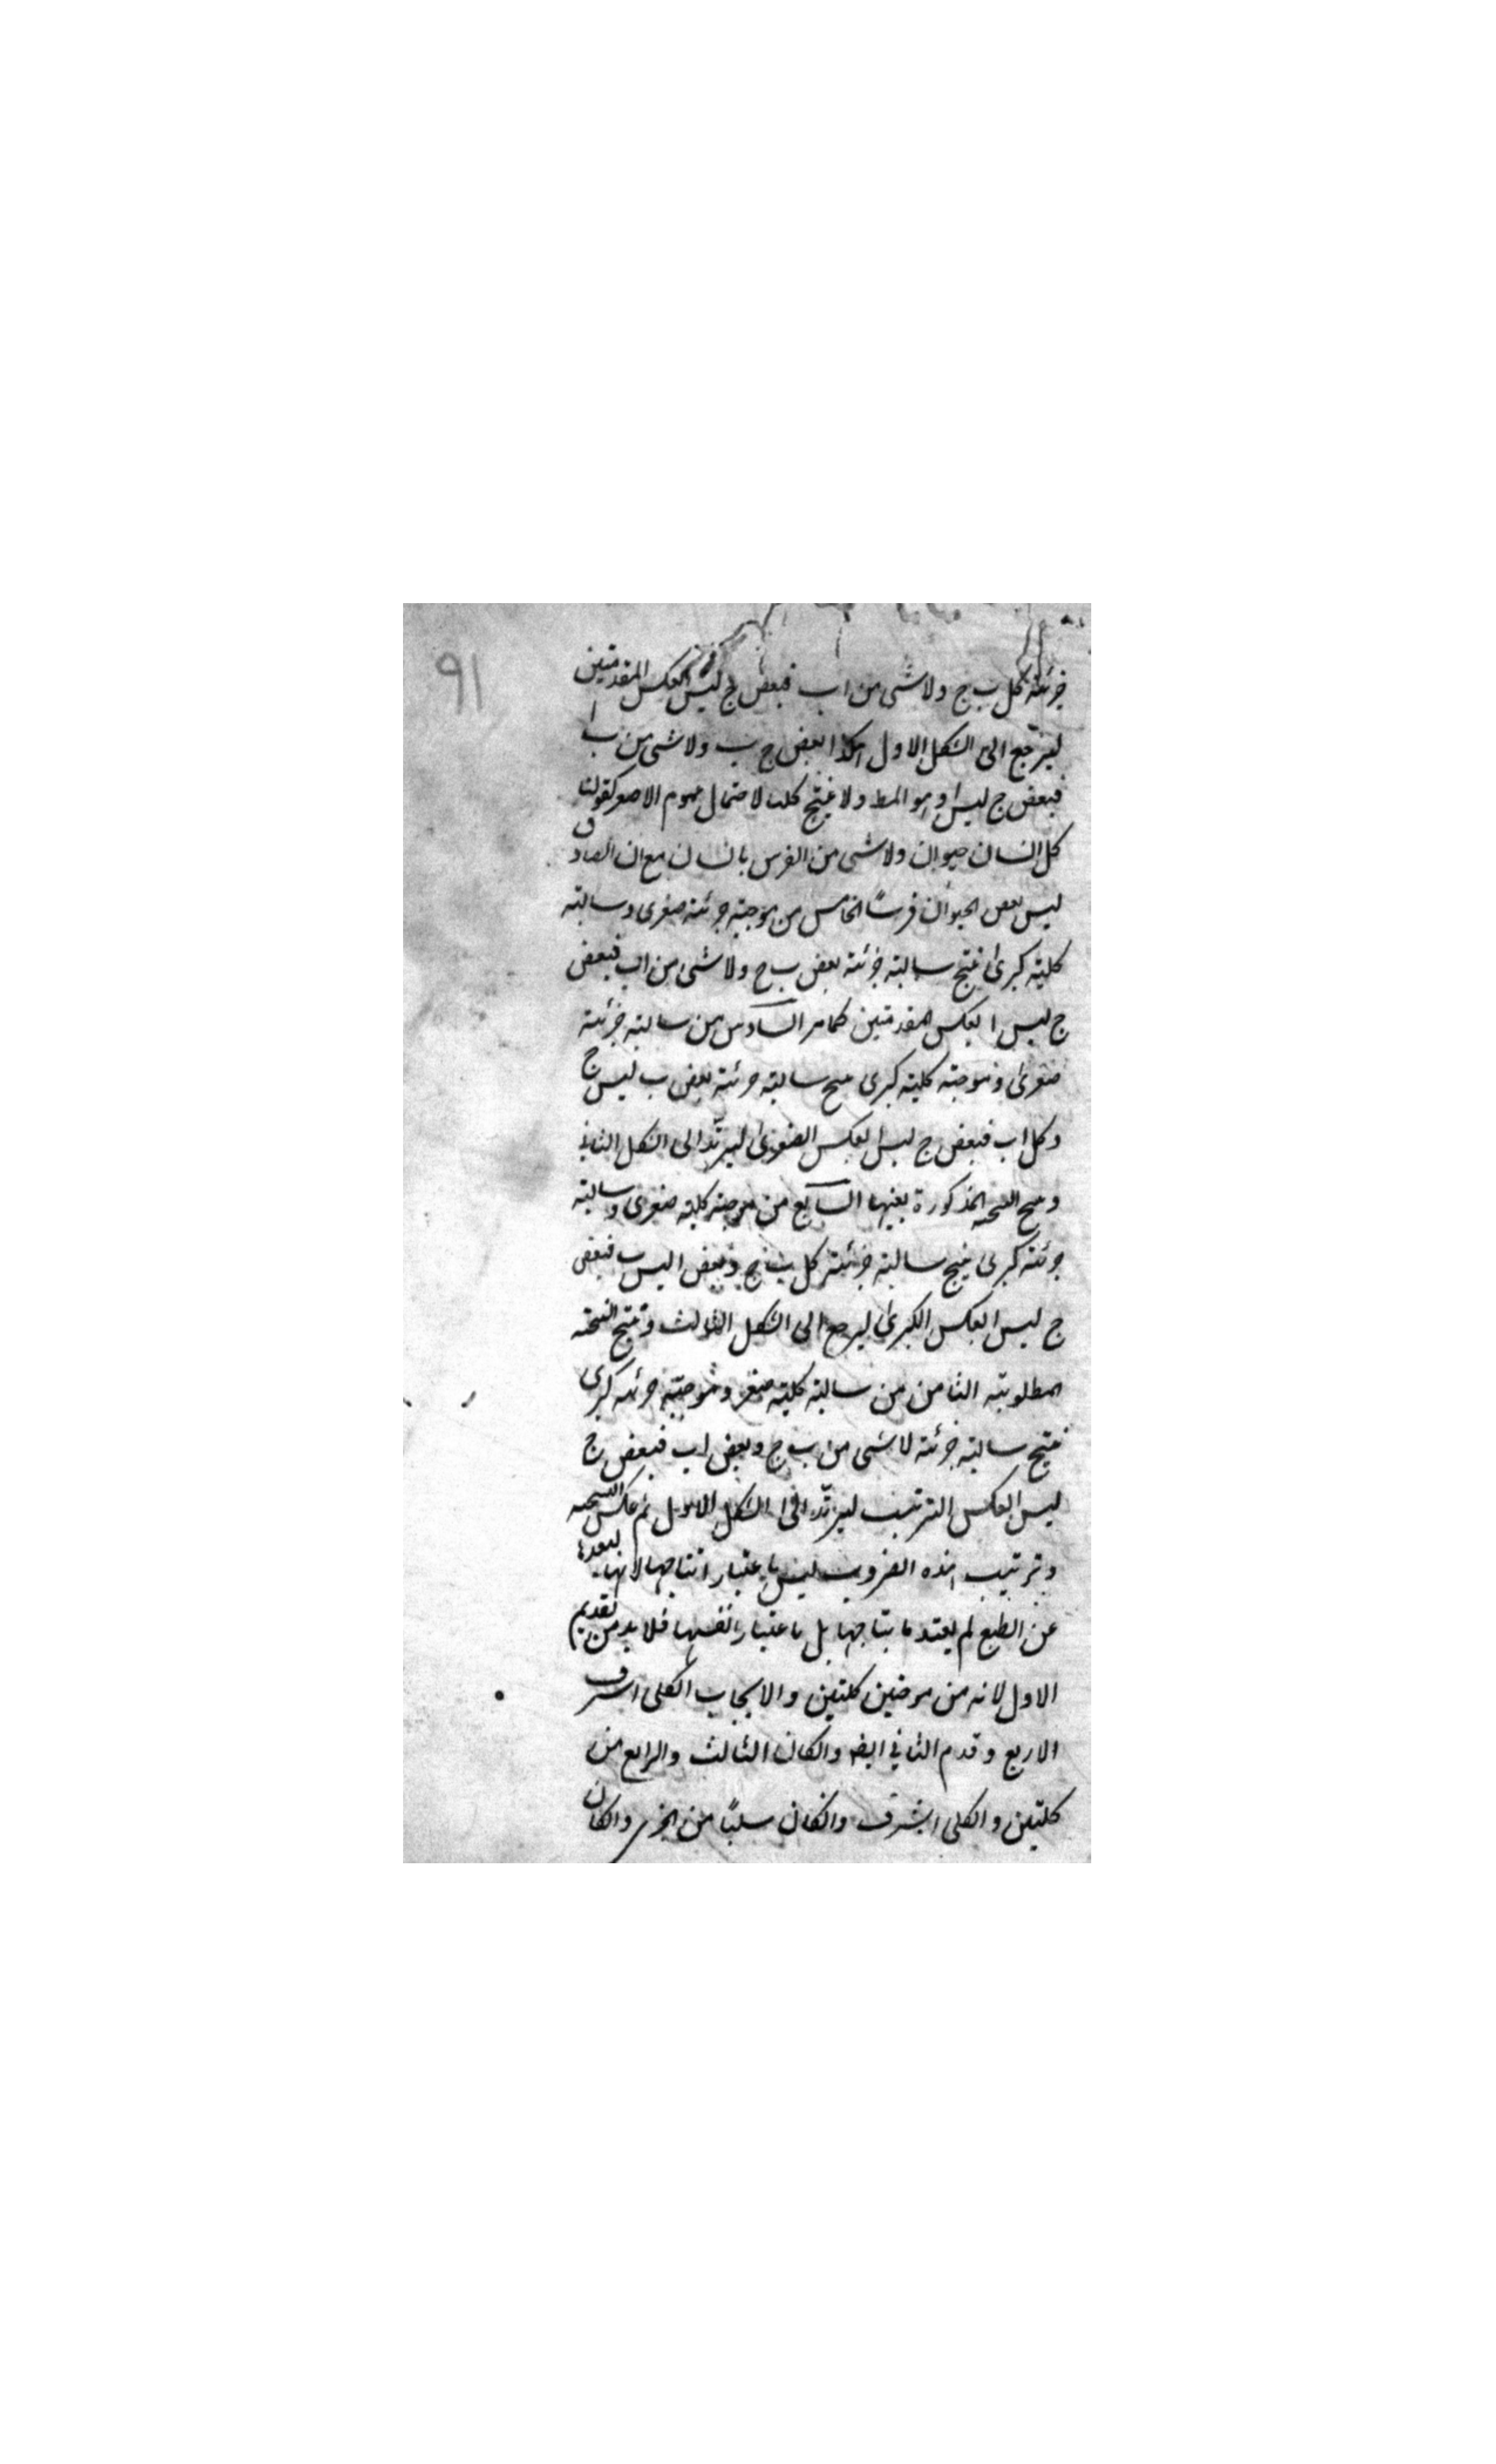 ٩١
جزئية كل ب ج ولا شى من ا ب فبعض ج ليس ا بعكس المقدمتين
ليرجع الى الشكل الاول هكذا بعض ج ب ولا شى من ب ا
فبعض ج ليس ا وهو المط ولا ينتج كليا لاحتمال عموم الاصغر كقولنا
كل انسان حيوان ولا شى من الفرس بانسان مع ان الصادق
ليس بعض الحيوان فرسًا الخامس من موجبة جزئية صغرى وسالبة
كلية كبرى ينتج سالبة جزئية بعض ب ج ولا شى من ا ب فبعض
ج ليس ا بعكس المقدمتين كما مر السادس من سالبة جزئية
صغرى وموجبة كلية كبرى ينتج سالبة جزئية بعض ب ليس ج
وكل ا ب فبعض ج ليس ا بعكس الصغرى ليرتد الى الشكل الثانى
وينتج النتيجة المذكورة بعينها السابع من موجبة كلية صغرى وسالبة
جزئية كبرى ينتج سالبة جزئية كل ب ج وبعض ا ليس ب فبعض
ج ليس ا بعكس الكبرى ليرجع الى الشكل الثالث وينتج النتيجة
المطلوبة الثامن من سالبة كلية صغرى وموجبة جزئية كبرى
ينتج سالبة جزئية لا شى من ب ج وبعض ا ب فبعض ج
ليس ا بعكس الترتيب ليرتد الى الشكل الاول ثم عكس النتيجة
وترتيب هذه الضروب ليس باعتبار انتاجها لانها لبعدها
عن الطبع لم يعتد بانتاجها بل باعتبار انفسها فلا بد من تقديم
الاول لانه من موجبتين كليتين والايجاب الكلى اشرف
الاربع وقدم الثاني ايضا وانكان الثالث والرابع من
كليتين والكلى اشرف وانكان سلبًا من الجزى وانكان